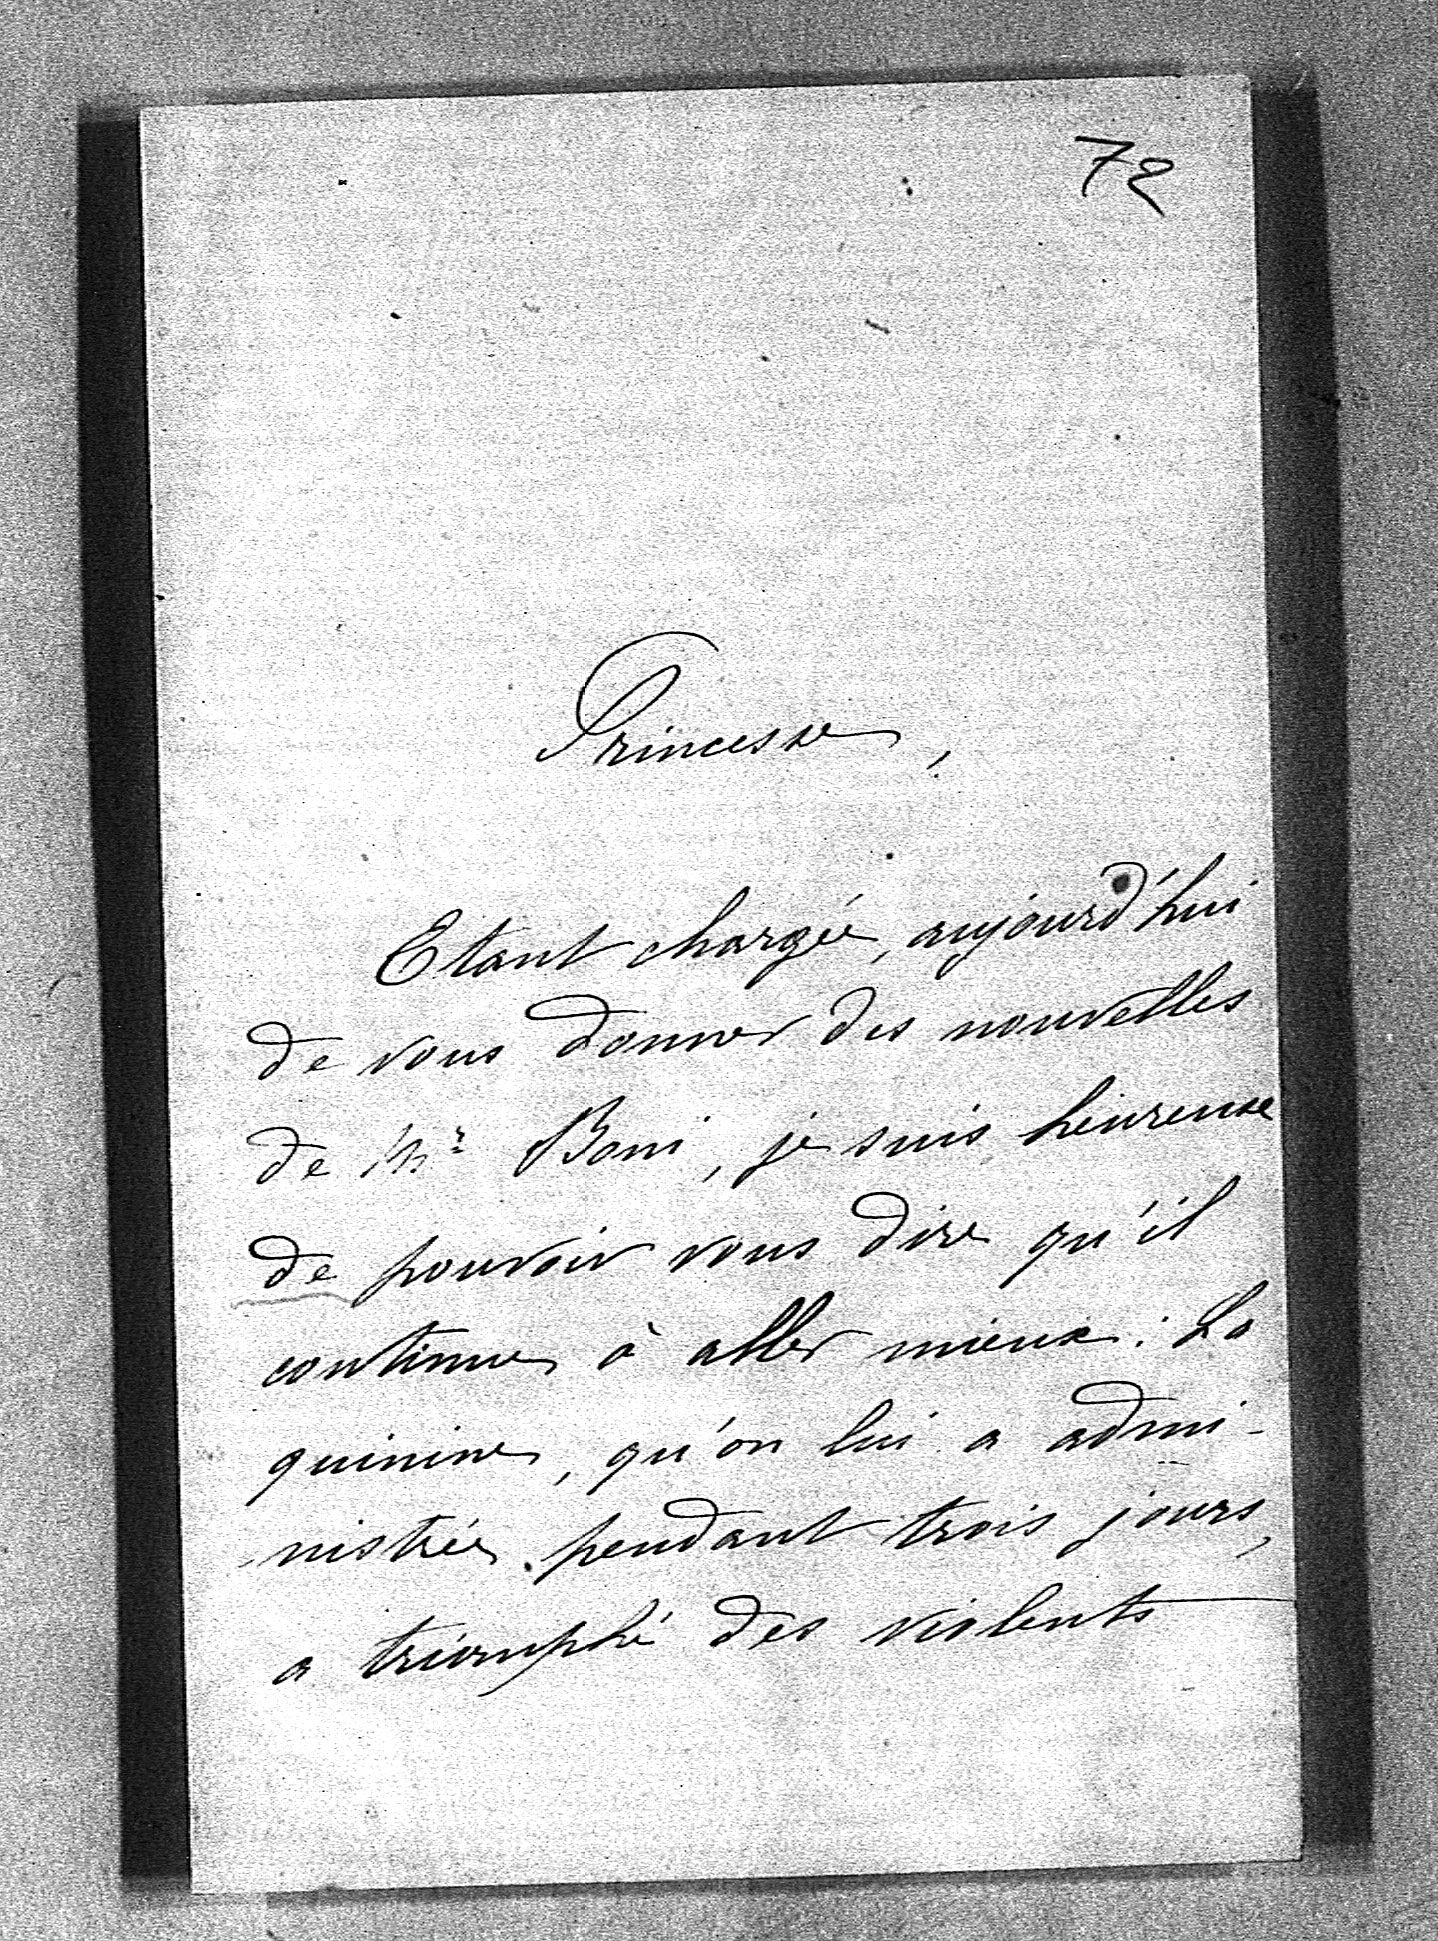 72
Princesse,
Etant chargée, aujourd'hui
de vous donner des nouvelles
de Mr Boni, je suis heureuse
de pouvoir vous dire qu'il
continue à aller mieux : La
quinine, qu'on lui a admi-
nistrée pendant trois jours,
a triomphé des violents